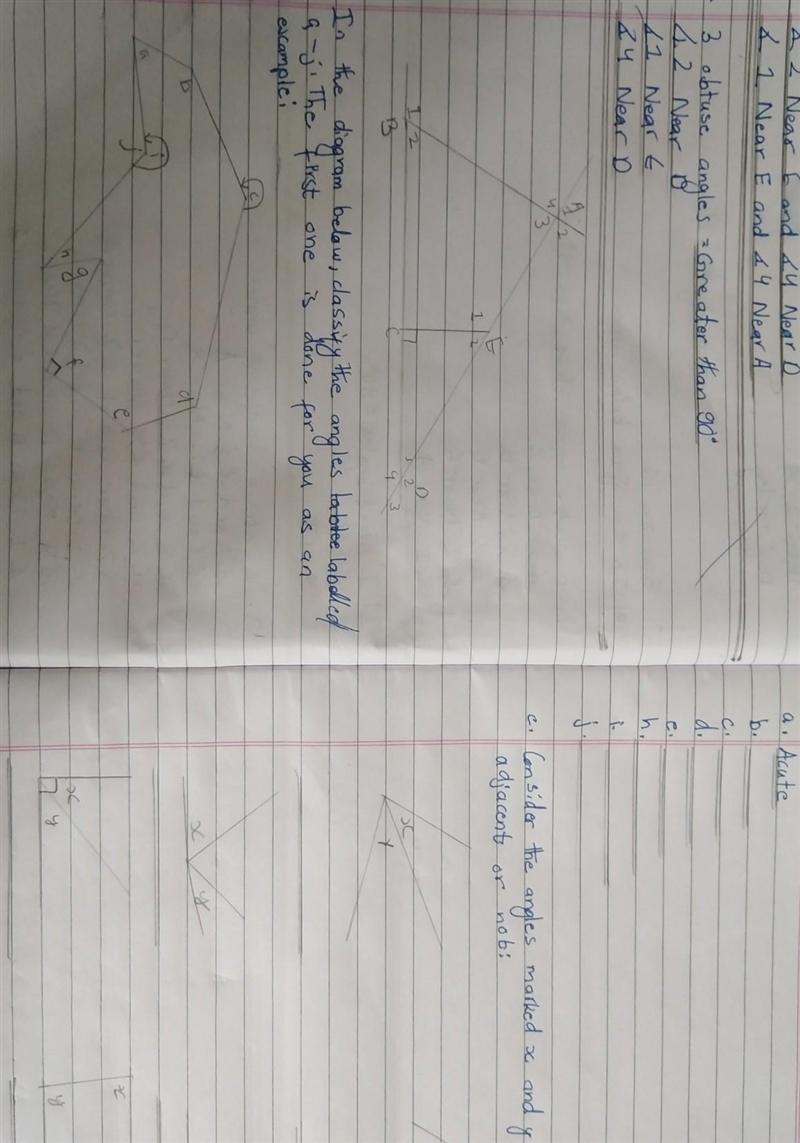 ∠2 Near E and ∠4 Near D
∠1 Near E and ∠4 Near A
3 obtuse angles = Greater than 90°
∠2 Near B
∠1 Near E
∠4 Near D
A
1
2
3
4
1
2
B
1
2
E
C
1
2
D
3
4
In the diagram below, classify the angles labelled
a-j. The first one is done for you as an
example:
a
b
c
d
e
f
g
h
i
j
a. Acute
b.
c.
d.
e.
h.
i.
j.
c. Consider the angles marked x and y
adjacent or not:
x
y
x
y
x
y
x
y